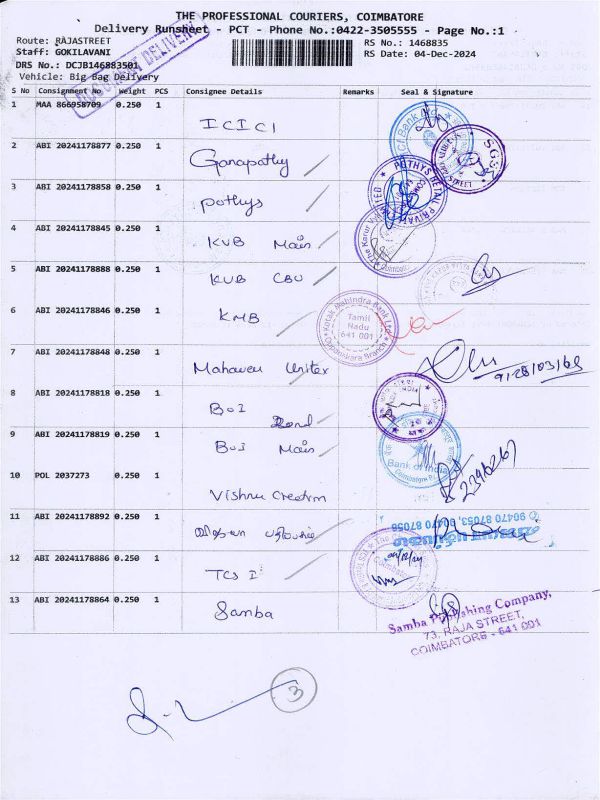 THE PROFESSIONAL COURIERS, COIMBATORE
Delivery Runsheet - PCT - Phone No.:0422-3505555 - Page No.:1
Route: RAJASTREET
RS No.: 1468835
Staff: GOKILAVANI
RS Date: 04-Dec-2024
DRS No.: DCJB146883501
Vehicle: Big Bag Delivery
S No Consignment No Weight PCS Consignee Details Remarks Seal & Signature
1 MAA 866958709 0.250 1 ICICI
2 ABI 20241178877 0.250 1 Ganapathy
3 ABI 20241178858 0.250 1 Pothys
4 ABI 20241178845 0.250 1 KVB Main
5 ABI 20241178888 0.250 1 KVB CBU
6 ABI 20241178846 0.250 1 KMB
7 ABI 20241178848 0.250 1
8 ABI 20241178818 0.250 1 BOI
9 ABI 20241178819 0.250 1 BOI Main
10 POL 2037273 0.250 1 Vishnu
11 ABI 20241178892 0.250 1
12 ABI 20241178886 0.250 1 TCS
13 ABI 20241178864 0.250 1 Samba
POTHYS RETAIL PRIVATE LIMITED
Kotak Mahindra Bank Ltd
Tamil
Nadu
641 001
Oppanakara Branch
Bank of India
90470 87053, 90470 87056
Samba Publishing Company,
73, RAJA STREET,
COIMBATORE - 641 001
3